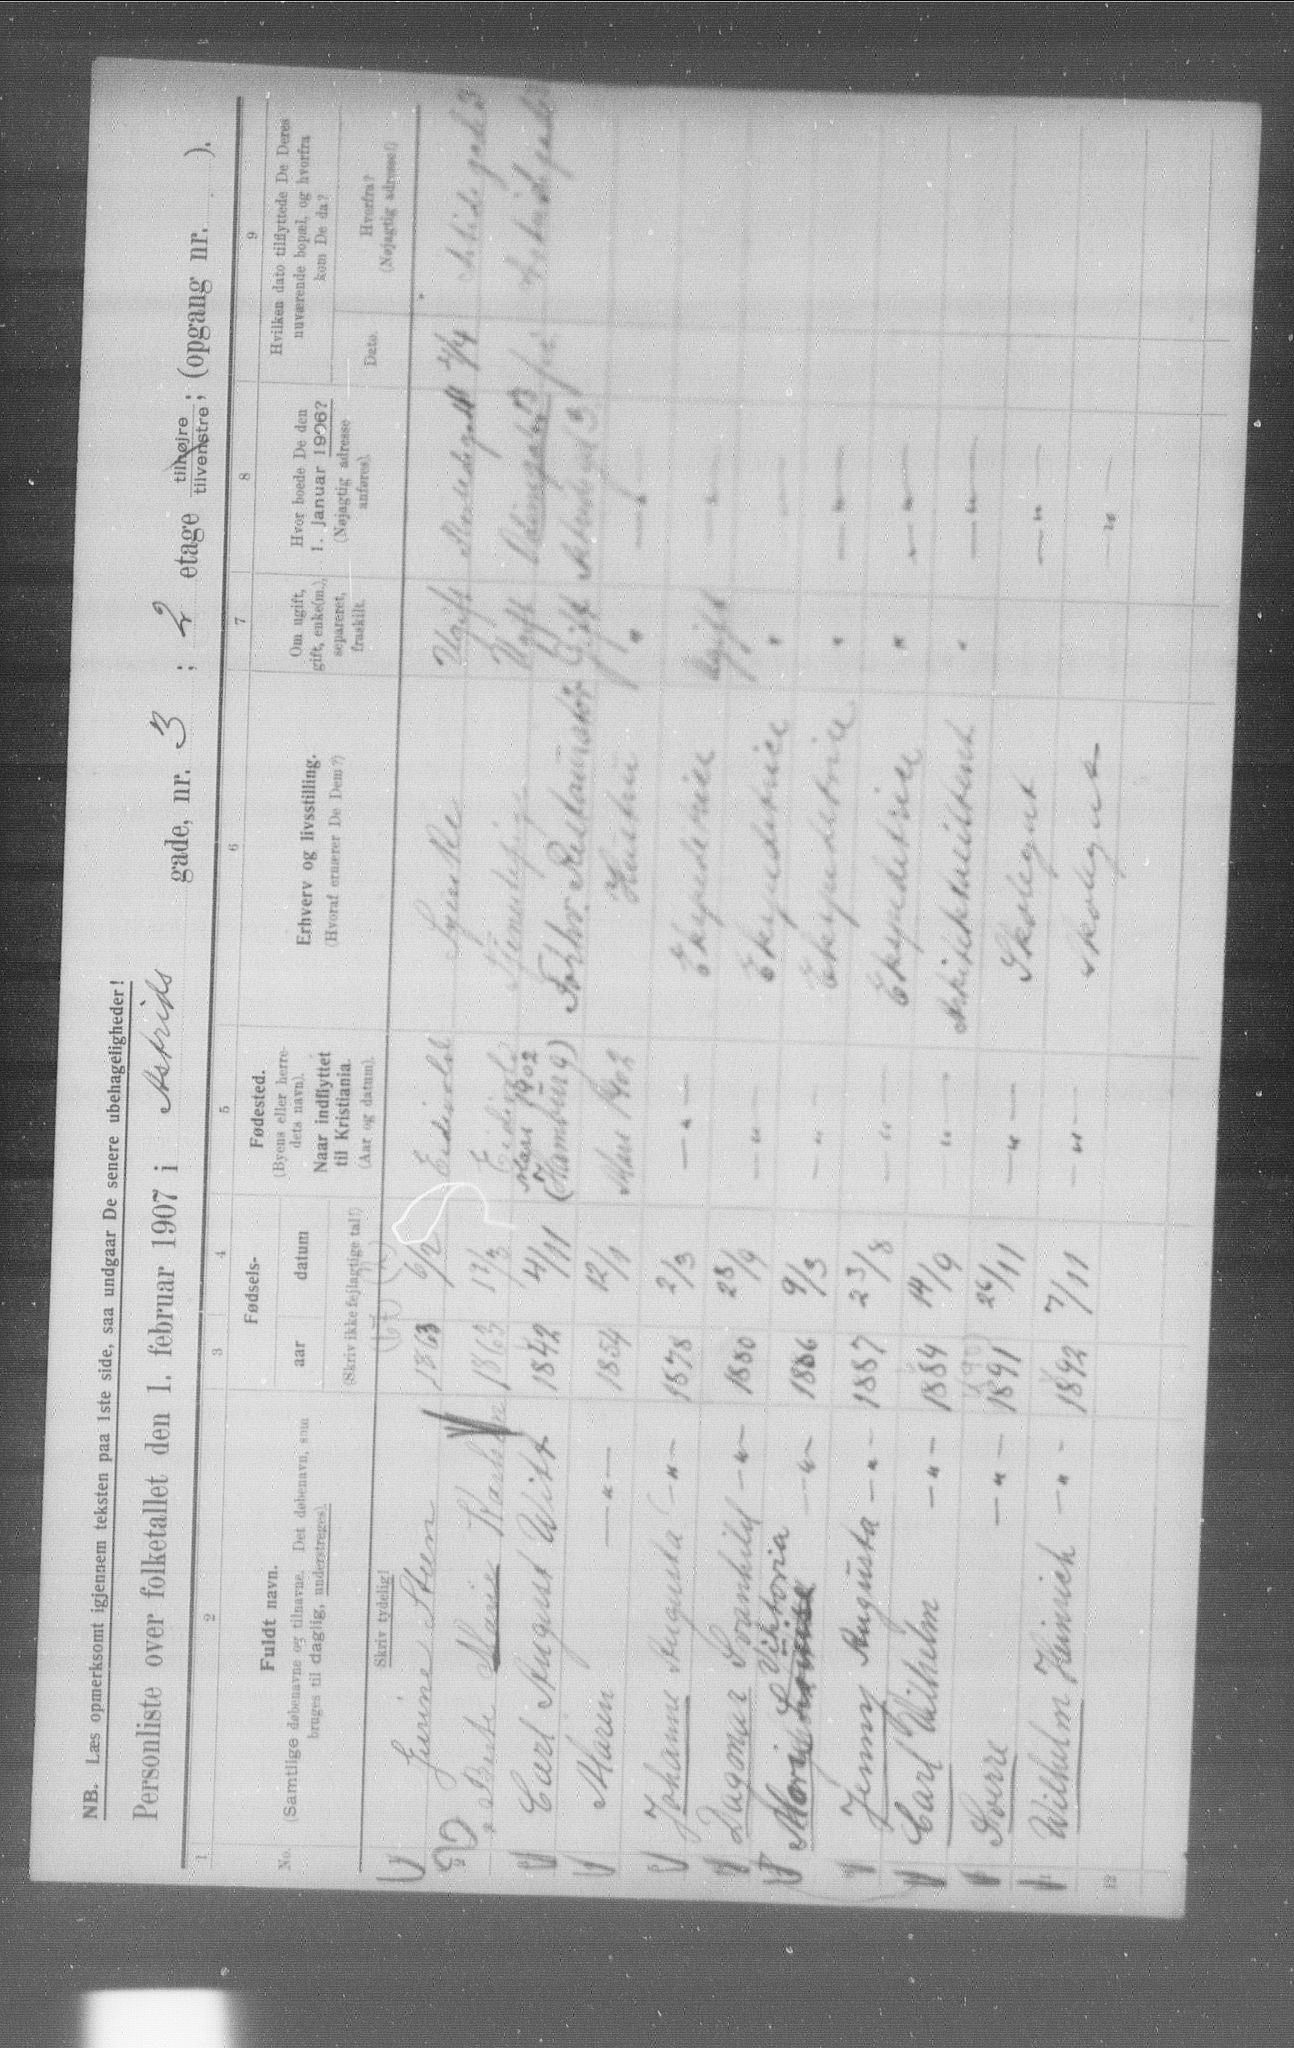 NB. Læs opmerksomt igjennem teksten paa 1ste side, saa undgaar De senere ubehageligheder!
Personliste over folketallet den 1. februar 1907 i Astrids gade, nr. 3 ; 2 etage tilhøjre tilvenstre ; (opgang nr. ).
1 2 3 4 5 6 7 8 9
No.
Fuldt navn.
(Samtlige døbenavne og tilnavne. Det døbenavn, som
bruges til daglig, understreges).
Skriv tydelig!
Fødsels-
aar datum
(Skriv ikke fejlagtige tal!)
Fødested.
(Byens eller herre-
dets navn).
Naar indflyttet
til Kristiania.
(Aar og datum).
Erhverv og livsstilling.
(Hvoraf ernærer De Dem?)
Om ugift,
gift, enke(m.),
separeret,
fraskilt.
Hvor boede De den
1. januar 1906?
(Nøjagtig adresse
anføres).
Hvilken dato tilflyttede De Deres
nuværende bopæl, og hvorfra
kom De da?
Dato.
Hvorfra?
(Nøjagtig adresse!)
Steen 1863 6/2 Eidsvold Ugift
Marie 1863 12/3 Tjenestepige Ugift
Carl August Witt 1842 4/11 Mars 1902 (Hamburg) Forhv. Restauratør Gift Astridsgd 3
Maren —"— 1854 12/1 Mars 1902 Hustru " —"—
Johanne Augusta —"— 1878 2/3 —"— Ekspeditrice Ugift —"—
Dagmar Svanhild —"— 1880 23/9 —"— Ekspeditrice " —
Viktoria —"— 1886 9/3 " Ekspeditrice " —"—
Jenny Augusta —"— 1887 23/8 —"— Ekspeditrice " —"—
Carl Wilhelm —"— 1884 14/9 —"— Arkitektassistent " —"—
Sverre —"— 1891 26/11 —"— Skolegut —"—
Wilhelm Heinrich —"— 1892 7/11 —"— Skolegut —"—
12